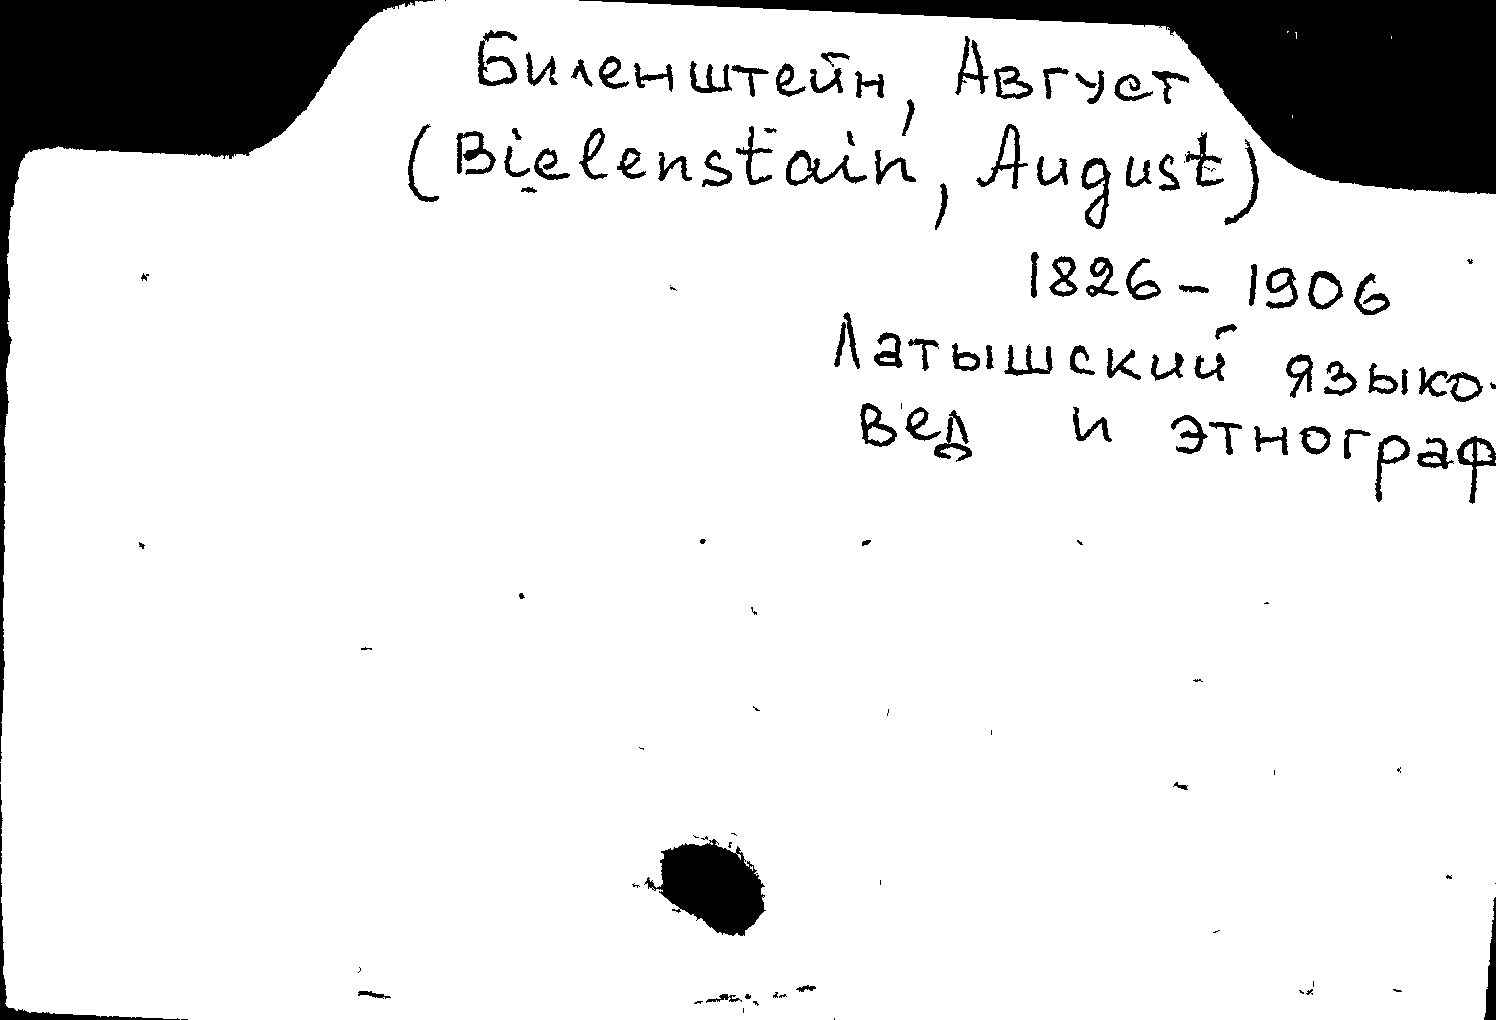 Биленштейн, Август
(Bielenstain, August)
1826 – 1906
Латышский языко-
вед и этнограф